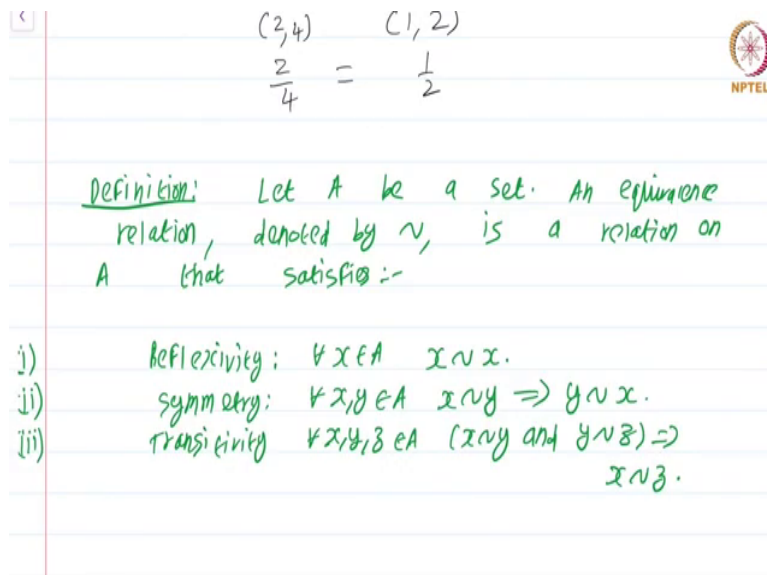 (2,4) (1,2)
2/4 = 1/2
NPTEL
Definition: Let A be a set. An equivalence
relation, denoted by ~, is a relation on
A that satisfies :-
i) Reflexivity: ∀ x ∈ A x ~ x.
ii) Symmetry: ∀ x,y ∈ A x ~ y => y ~ x.
iii) Transitivity ∀ x,y,z ∈ A (x ~ y and y ~ z) =>
x ~ z.